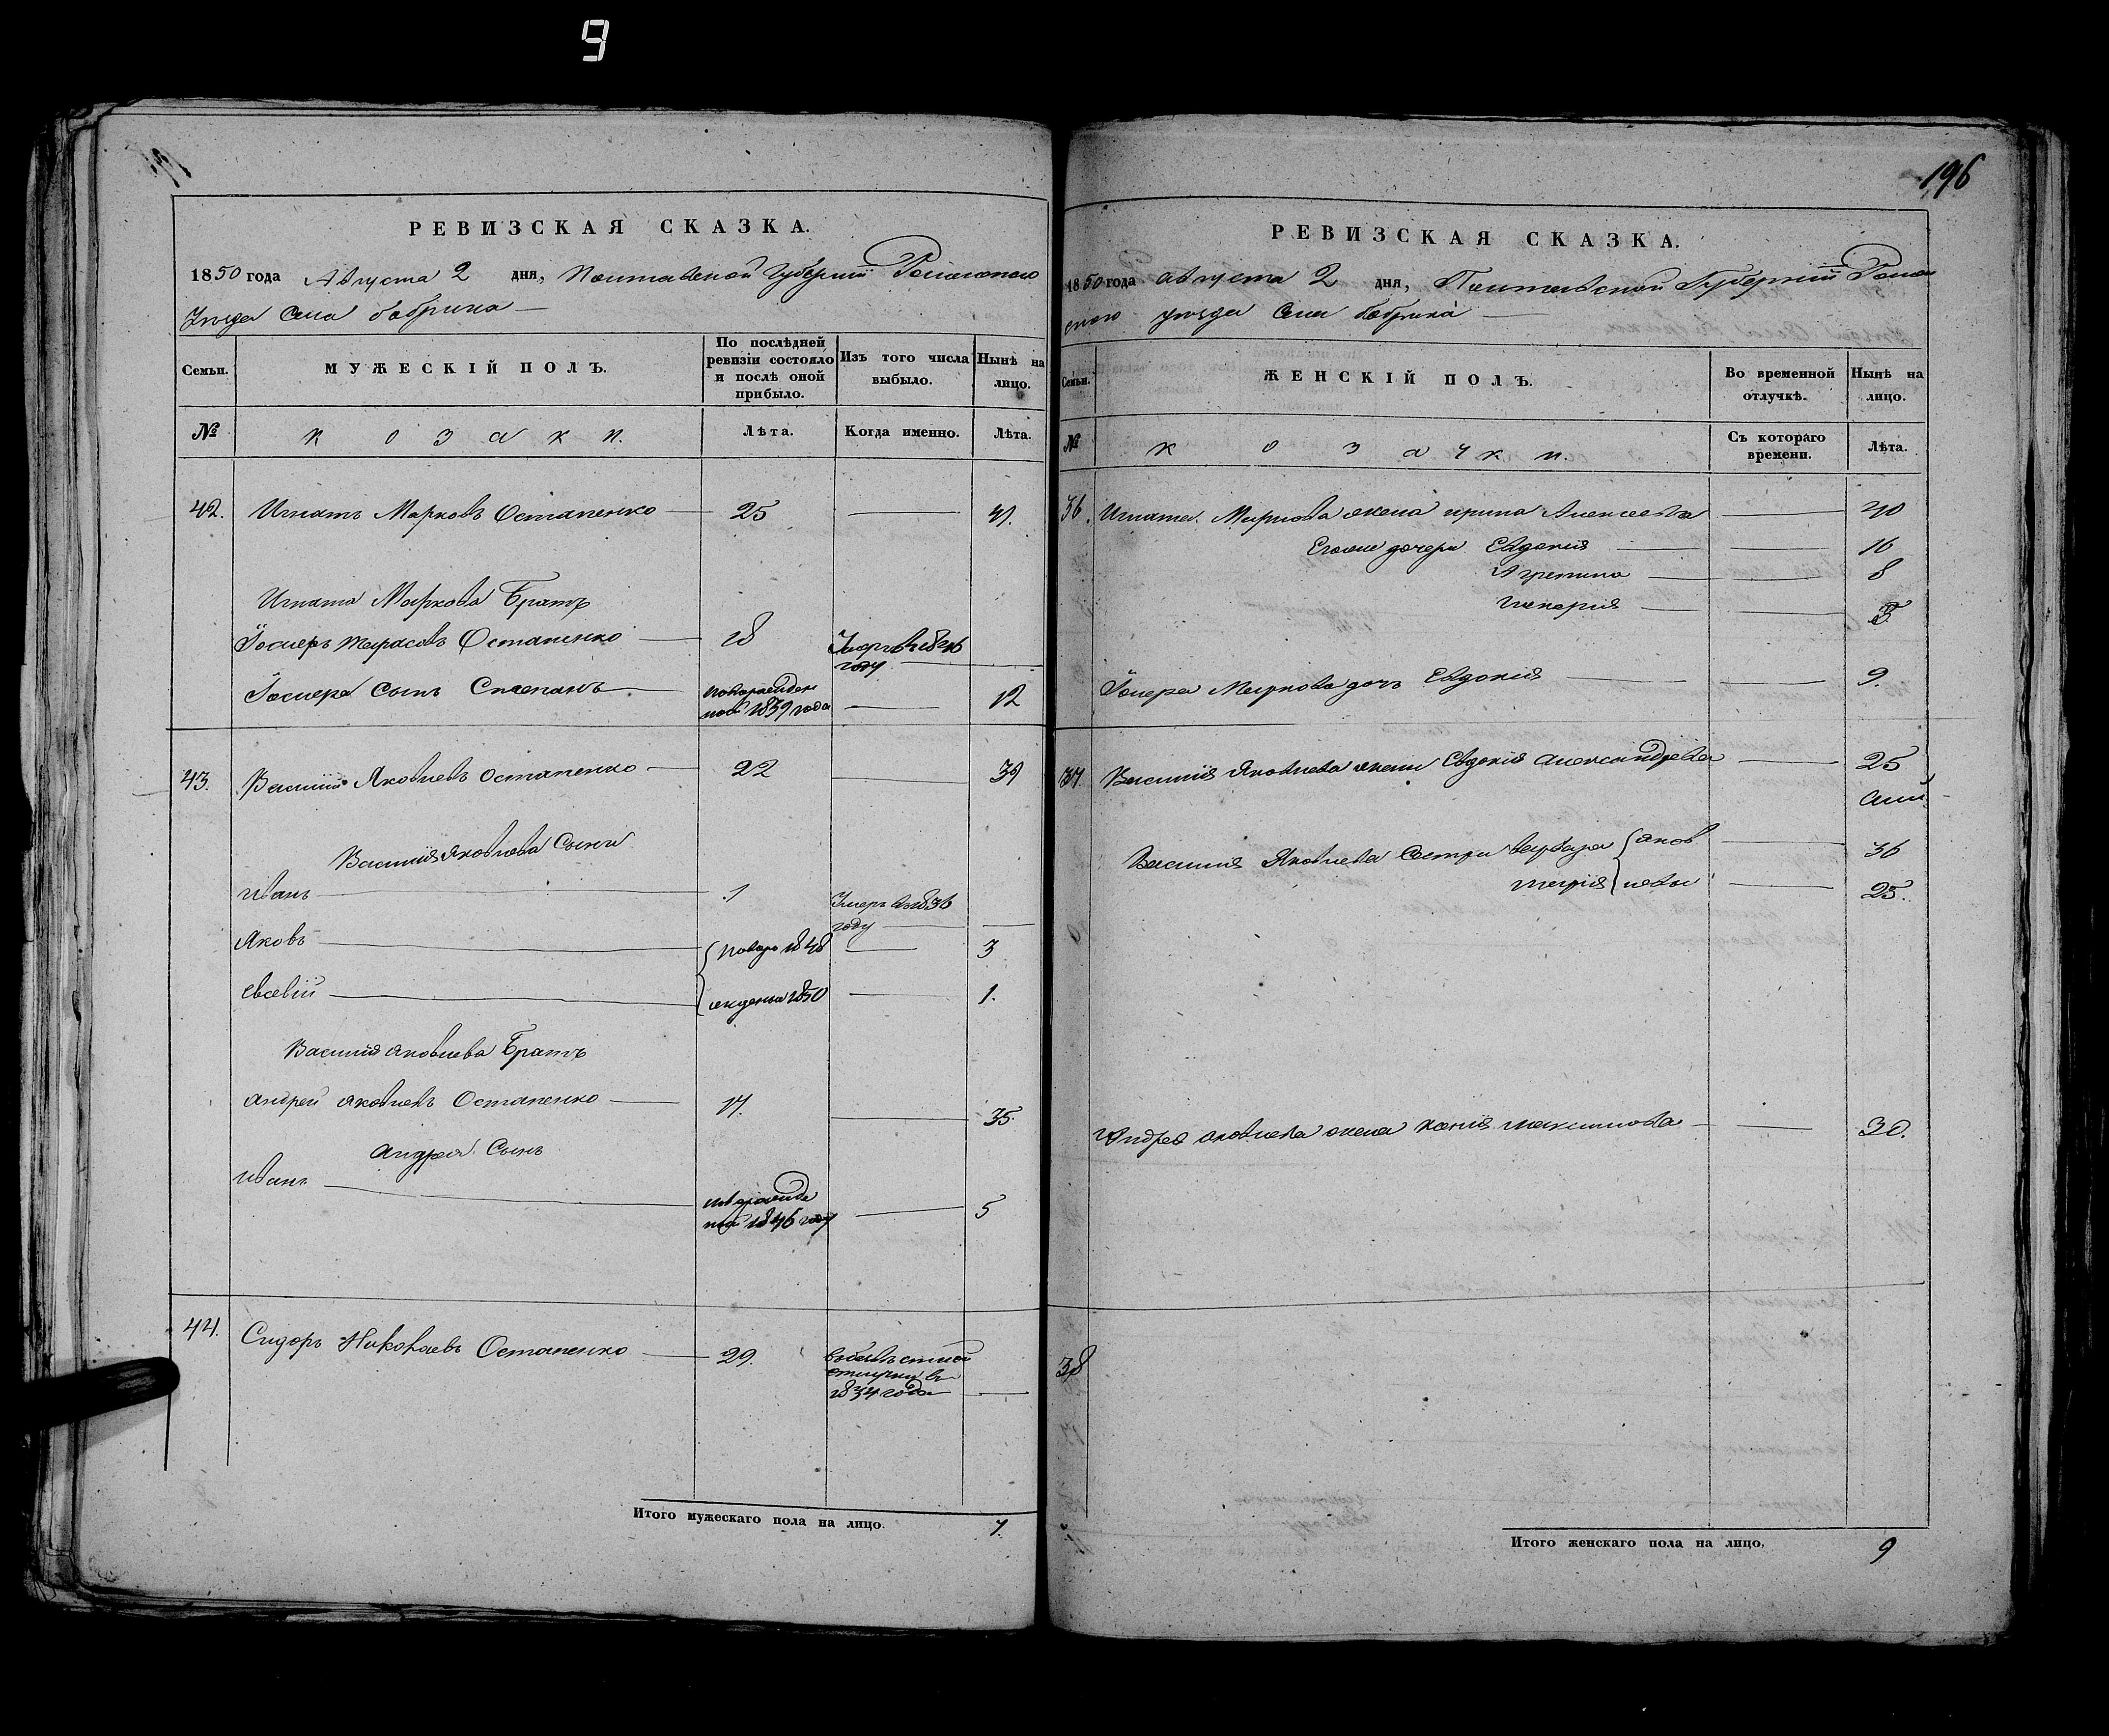 9
196
РЕВИЗСКАЯ СКАЗКА.
1850 года Августа 2 дня, Полтавской Губернии Роменского
Уезда Села бобрика
Семьи.
МУЖЕСКІЙ ПОЛЪ.
По послѣдней ревизіи состояло и послѣ оной прибыло.
Изъ того числа выбыло.
Нынѣ на лицо.
№
козаки.
Лѣта.
Когда именно.
Лѣта.
42. Игнатъ Марковъ Остапенко 25 41.
Игната Маркова Братъ
Остапенко 18 Умеръ в 1846
году
сынъ Степанъ новорожден
ной 1839 года 12
43. Василий Яковлевъ Остапенко 22 39
Василия Яковлева Сыны
Иванъ 1 Умеръ в 1836
году
Яковъ новоро 1848 3
Евсевій жденыи 1850 1.
Василия Яковлева Братъ
Андрей Яковлевъ Остапенко 17. 35.
Андрея Сынъ
Иванъ новорожде
ной 1846 году 5
44. Сидоръ Николаевъ Остапенко 29. в
отлучки в
1834 года
Итого мужескаго пола на лицо. 7.
РЕВИЗСКАЯ СКАЗКА.
1850 года августа 2 дня, Полтавской Губерніи Ромен
ского уезда Села бобрика
Семьи.
ЖЕНСКІЙ ПОЛЪ.
Во временной отлучкѣ.
Нынѣ на лицо.
№
козачки.
Съ котораго времени.
Лѣта.
36. Игната Маркова жена ирина Алексеева 40
Его же дочери Евдокия 16
Агрепина 8
Гликерия
Маркова дочь Евдокия 9.
37. Василия Яковлева жена Евдокия александрева 25
Василия Яковлева Сестры варвара яков 36
мария левы 25.
Андрея яковлева жена ксения максимова 30.
38
Итого женскаго пола на лицо. 9